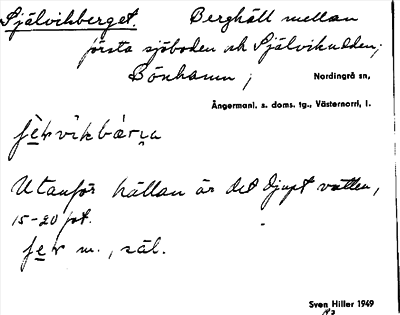 Själviksberget. Berghäll mellan
första sjöboden och Själviksudden;
Bönhamn; Nordingrå sn,
Ångermanl. s. doms. tg., Västernorrl, l.
Utanför hällan är det djupt vatten,
15-20 fot.
m., säl.
Sven Hiller 1949